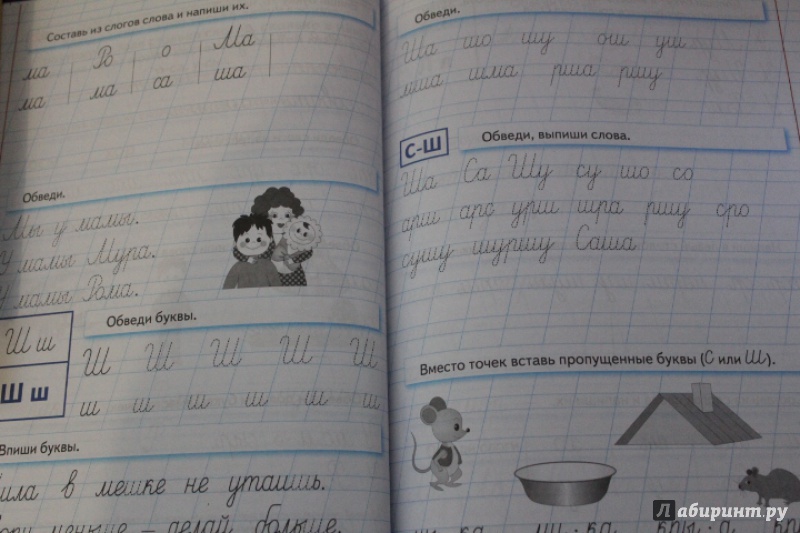 Составь из слогов слова и напиши их.
ма Ро о Ма
ма ма са ша
Обведи.
Мы у мамы.
У мамы Мура.
У мамы Рома.
Ш ш
Ш ш
Обведи буквы.
Ш Ш Ш Ш Ш
ш ш ш ш ш ш
Впиши буквы.
в мешке не утаишь.
меньше – делай больше.
Обведи.
Ша шо шу ош уш
мша шма рша ршу
С-Ш
Обведи, выпиши слова.
Ша Са Шу су шо со
арш арс урш шра ршу сро
сушу шуршу Саша
Вместо точек вставь пропущенные буквы (С или Ш).
ка ми·ка кры·а
Лабиринт.ру